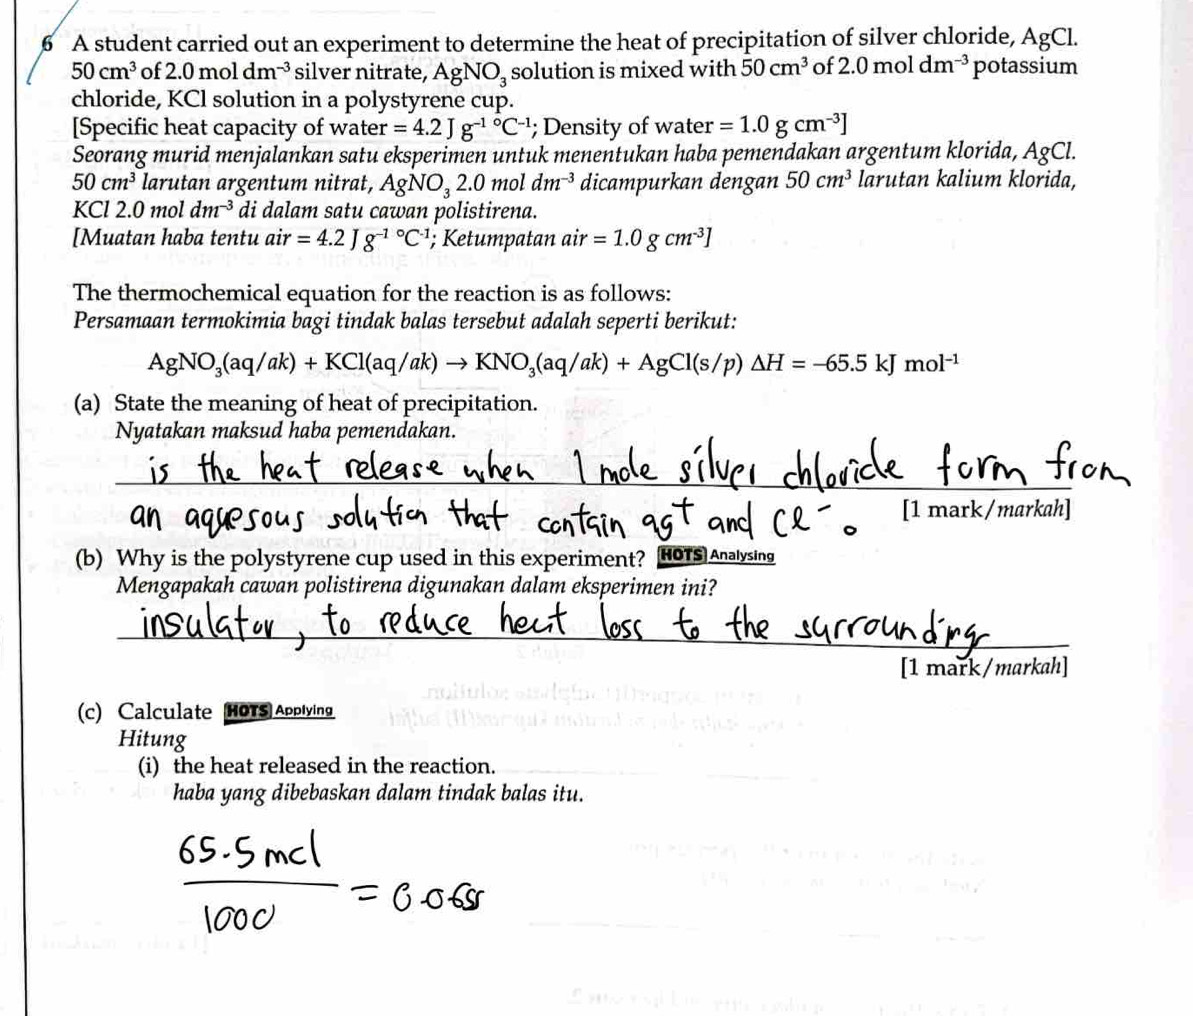 6 A student carried out an experiment to determine the heat of precipitation of silver chloride, AgCl.
50 cm³ of 2.0 mol dm⁻³ silver nitrate, AgNO₃ solution is mixed with 50 cm³ of 2.0 mol dm⁻³ potassium
chloride, KCl solution in a polystyrene cup.
[Specific heat capacity of water = 4.2 J g⁻¹ °C⁻¹; Density of water = 1.0 g cm⁻³]
Seorang murid menjalankan satu eksperimen untuk menentukan haba pemendakan argentum klorida, AgCl.
50 cm³ larutan argentum nitrat, AgNO₃ 2.0 mol dm⁻³ dicampurkan dengan 50 cm³ larutan kalium klorida,
KCl 2.0 mol dm⁻³ di dalam satu cawan polistirena.
[Muatan haba tentu air = 4.2 J g⁻¹ °C⁻¹; Ketumpatan air = 1.0 g cm⁻³]
The thermochemical equation for the reaction is as follows:
Persamaan termokimia bagi tindak balas tersebut adalah seperti berikut:
AgNO₃(aq/ak) + KCl(aq/ak) → KNO₃(aq/ak) + AgCl(s/p) ΔH = –65.5 kJ mol⁻¹
(a) State the meaning of heat of precipitation.
Nyatakan maksud haba pemendakan.
is the heat release when 1 mole silver chloride form from
an aquesous solution that contain ag⁺ and Cl⁻.
[1 mark/markah]
(b) Why is the polystyrene cup used in this experiment? HOTS Analysing
Mengapakah cawan polistirena digunakan dalam eksperimen ini?
insulator, to reduce heat loss to the surrounding
[1 mark/markah]
(c) Calculate HOTS Applying
Hitung
(i) the heat released in the reaction.
haba yang dibebaskan dalam tindak balas itu.
65.5 mol
1000
=